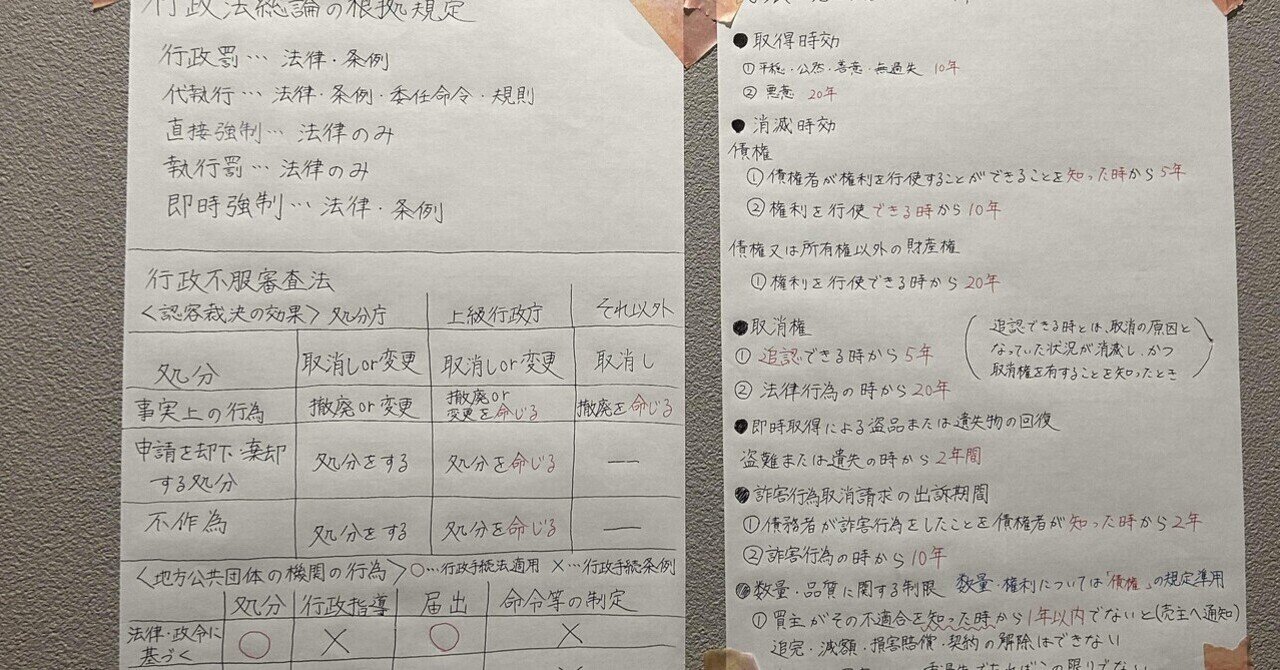 行政法総論の根拠規定
行政罰… 法律・条例
代執行… 法律・条例・委任命令・規則
直接強制… 法律のみ
執行罰… 法律のみ
即時強制… 法律・条例
行政不服審査法
<認容裁決の効果> 処分庁 上級行政庁 それ以外
処分 取消しor変更 取消しor変更 取消し
事実上の行為 撤廃or変更 撤廃or変更を命じる 撤廃を命じる
申請を却下・棄却する処分 処分をする 処分を命じる ―
不作為 処分をする 処分を命じる ―
<地方公共団体の機関の行為> ○…行政手続法適用 ×…行政手続条例
処分 行政指導 届出 命令等の制定
法律・政令に基づく ○ × ○ ×
●取得時効
①平穏・公然・善意・無過失 10年
② 悪意 20年
●消滅時効
債権
①債権者が権利を行使することができることを知った時から5年
②権利を行使できる時から10年
債権又は所有権以外の財産権
①権利を行使できる時から20年
●取消権
① 追認できる時から5年
② 法律行為の時から20年
(追認できる時とは、取消の原因と
なっていた状況が消滅し、かつ
取消権を有することを知ったとき)
●即時取得による盗品または遺失物の回復
盗難または遺失の時から2年間
●詐害行為取消請求の出訴期間
①債務者が詐害行為をしたことを債権者が知った時から2年
②詐害行為の時から10年
●数量・品質に関する制限 数量・権利については「債権」の規定準用
①買主がその不適合を知った時から1年以内でないと(売主へ通知)
追完・減額・損害賠償・契約の解除はできない